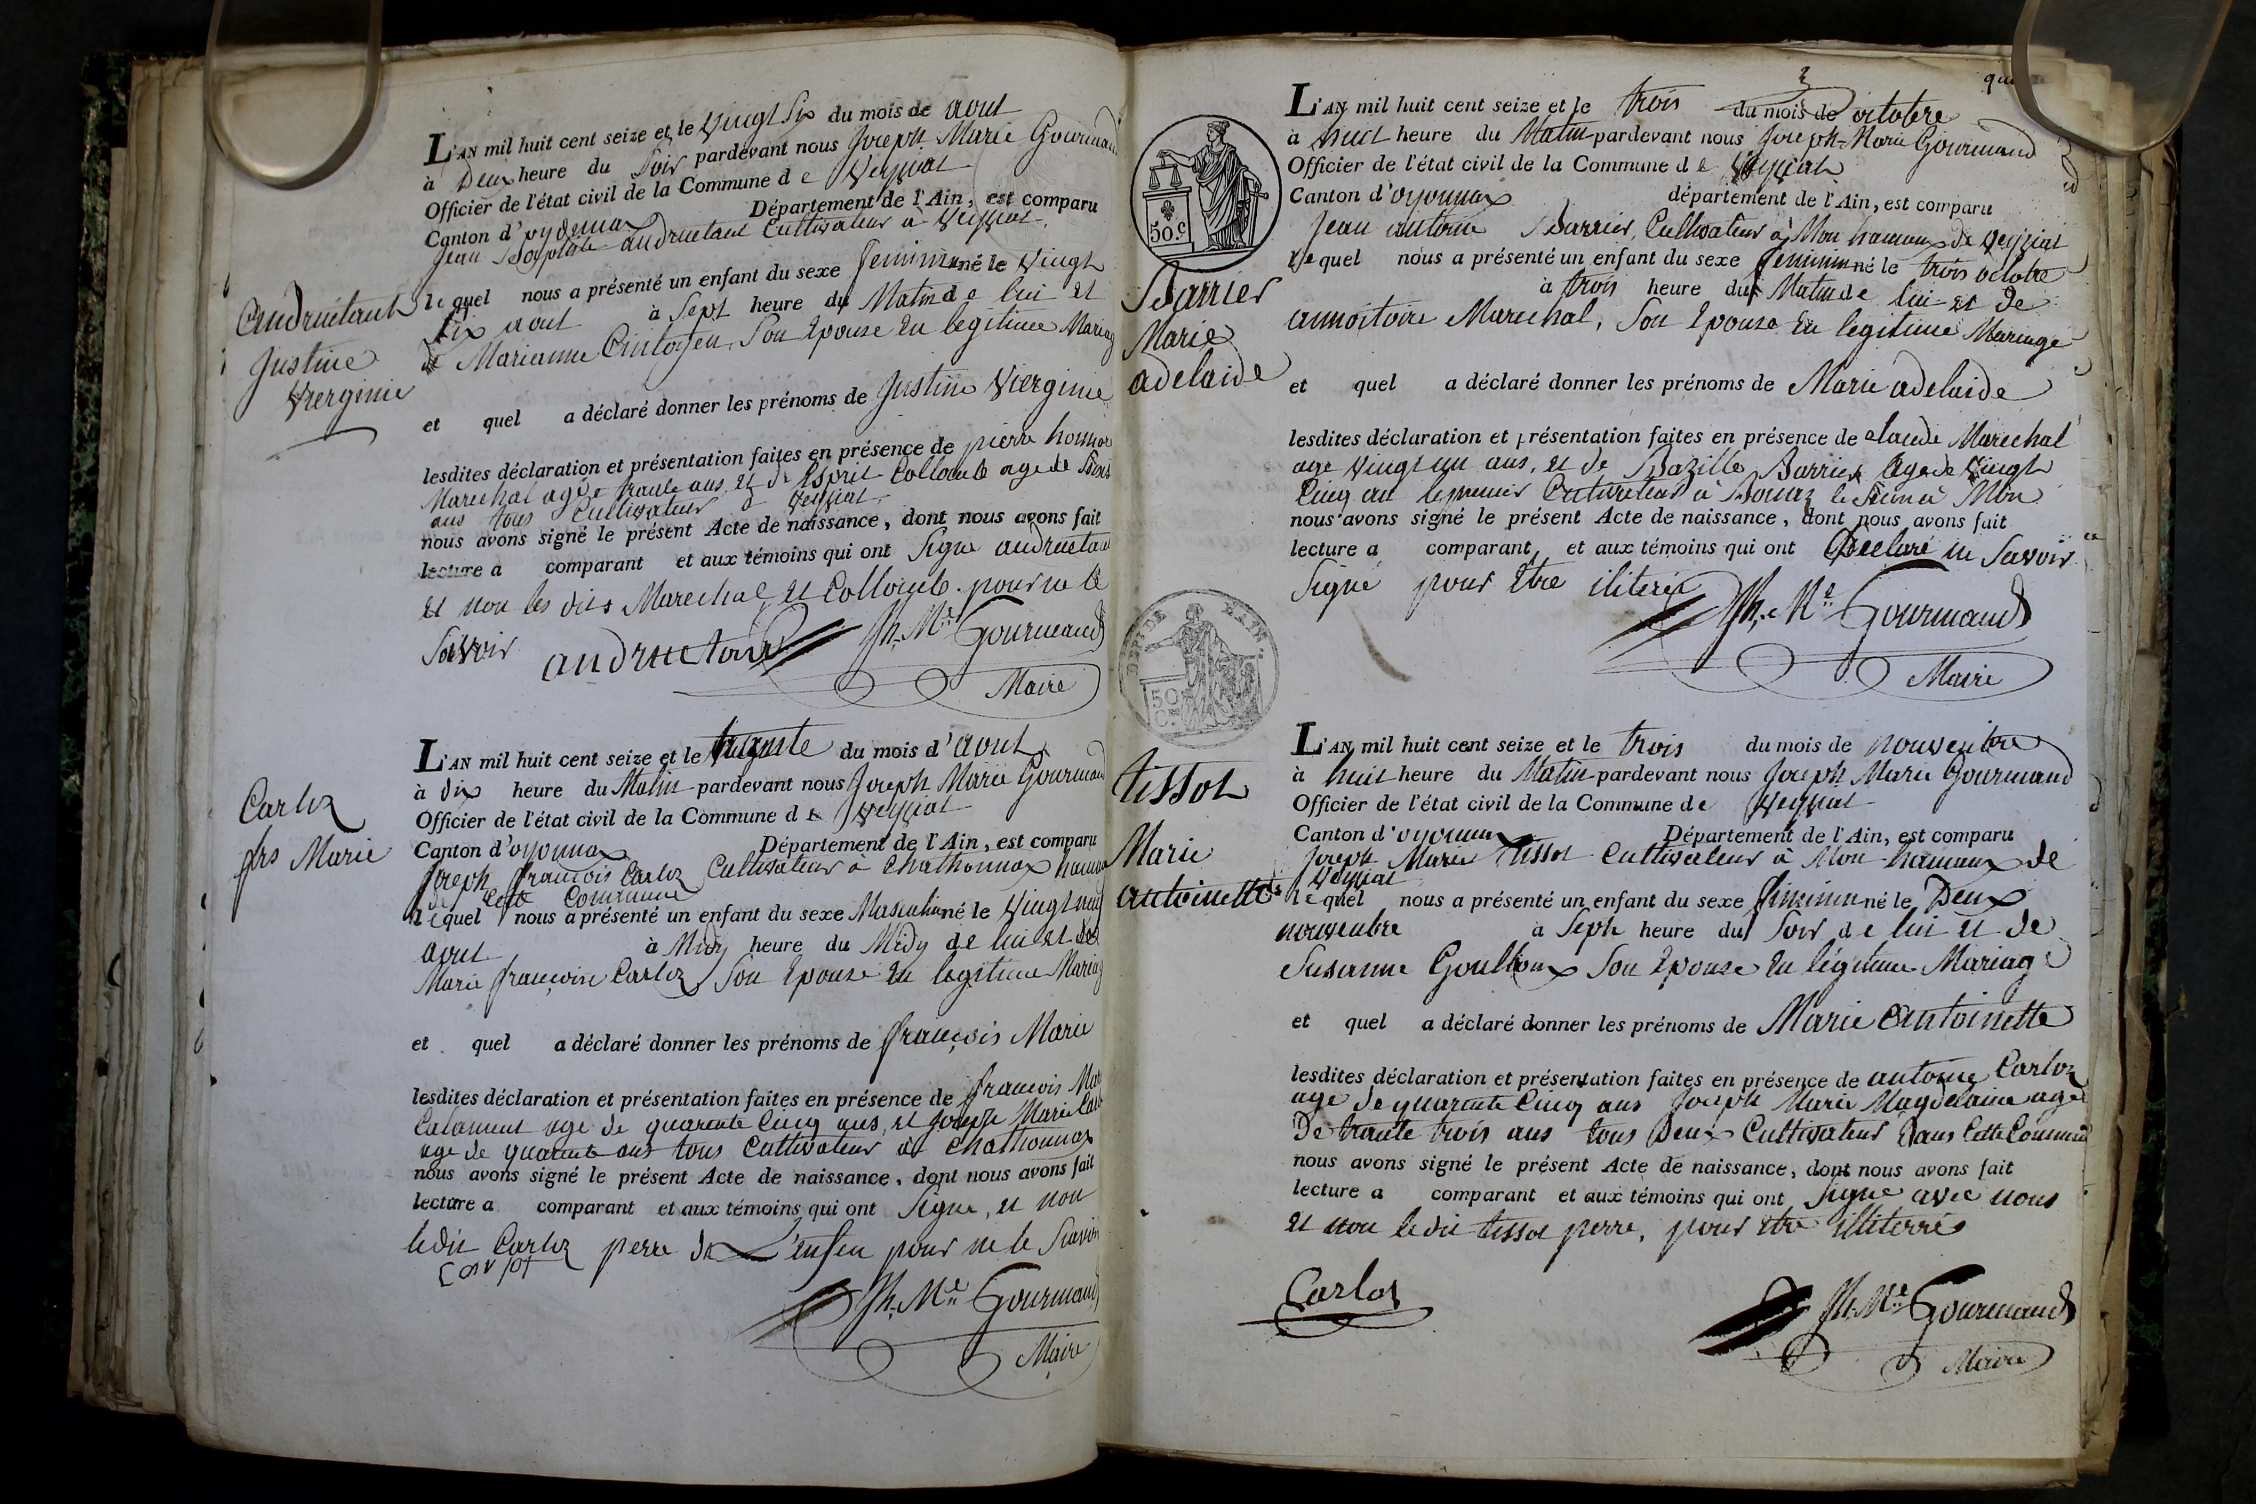 L'AN mil huit cent seize et le vingt six du mois de aout
à Deux heure du Soir pardevant nous Joseph Marie Gourmand
Officier de l'état civil de la Commune d e Veyziat
Canton d'oyonnax Département de l'Ain, est comparu
Jean Baptiste andruetant Cultivateur à Veyziat
le quel nous a présenté un enfant du sexe feminin né le Vingt
Six aout à Sept heure du Matin de lui et
de Marianne Cintoyen, Son Epouse En legitime Mariag
et quel a déclaré donner les prénoms de Justine Vierginie
lesdites déclaration et présentation faites en présence de pierre honnore
Marechal agé de trante ans, et de Esprit Collomb age de
ans tous Cultivateur à Veyziat
nous avons signé le présent Acte de naissance, dont nous avons fait
lecture a comparant et aux témoins qui ont Signe andruetan
et non les dits Marechal et Collomb. pour ne le
Savoir andruetant Jh. Me Gourmand
Maire
andruétant
Justine
Vierginie
L'AN mil huit cent seize et le trante du mois d'aout
à dix heure du Matin pardevant nous Joseph Marie Gourmand
Officier de l'état civil de la Commune d e Veyziat
Canton d'oyonnax Département de l'Ain, est comparu
Joseph françois Carloz Cultivateur à Chathonnax hamau
de Cette Commune
le quel nous a présenté un enfant du sexe Masculin né le Vingt neuf
aout à Midy heure du Midy de lui et de
Marie françoise Carloz, Son Epouse En legitime Mariag
et quel a déclaré donner les prénoms de françois Marie
lesdites déclaration et présentation faites en présence de francois Mar
age de quarante Cinq ans, et Joseph Marie Carl
age de quarante ans tous Cultivateur à Chathonnax
nous avons signé le présent Acte de naissance, dont nous avons fait
lecture a comparant et aux témoins qui ont Signe, et non
ledit Carloz perre de L'enfen pour ne le Scavoir
Jh. Me Gourmand
Maire
Carloz
frs Marie
L'AN mil huit cent seize et le trois du mois de octobre
à huit heure du Matin pardevant nous Joseph-Marie Gourmand
Officier de l'état civil de la Commune d e Veyziat
Canton d'oyonnax département de l'Ain, est comparu
Jean antoine Barrier, Cultivateur à Mon hamaux de Veyziat
le quel nous a présenté un enfant du sexe feminin né le trois octobre
à trois heure du Matin de lui et de
Marechal, Son Epouse En legitime Mariage
et quel a déclaré donner les prénoms de Marie adelaide
lesdites déclaration et présentation faites en présence de claude Marechal
age vingt un ans, et de Bazille Barrier age de Vingt
Cinq an le premier Cultivateur à Bouvz le à Mon
nous avons signé le présent Acte de naissance, dont nous avons fait
lecture a comparant et aux témoins qui ont Declaré ne Savoir
Signé pour Etre iliteré Jh. Me Gourmand
Maire
50.c
Barrier
Marie
adelaide
50
Cmes
L'AN mil huit cent seize et le trois du mois de nouvenbre
à huit heure du Matin pardevant nous Joseph Marie Gourmand
Officier de l'état civil de la Commune de Veyziat
Canton d'oyonnax Département de l'Ain, est comparu
Joseph Marie Tissot Cultivateur à Mon hamaux de
Veyziat
le quel nous a présenté un enfant du sexe feminin né le Deux
nouvenbre à Sept heure du Soir de lui et de
Susanne Goulloux Son Epouse En légitime Mariage
et quel a déclaré donner les prénoms de Marie antoinette
lesdites déclaration et présentation faites en présence de antoine Carloz
age de quarante Cinq ans Joseph Marie Magdelaine age
De trante trois ans tous Deux Cultivateur Dans Cette Commune
nous avons signé le présent Acte de naissance, dont nous avons fait
lecture a comparant et aux témoins qui ont Signe avec nous
et non le dit tissot perre, pour Etre illiterrés
Carloz Jh. Me Gourmand
Maire
tissot
Marie
antoinette